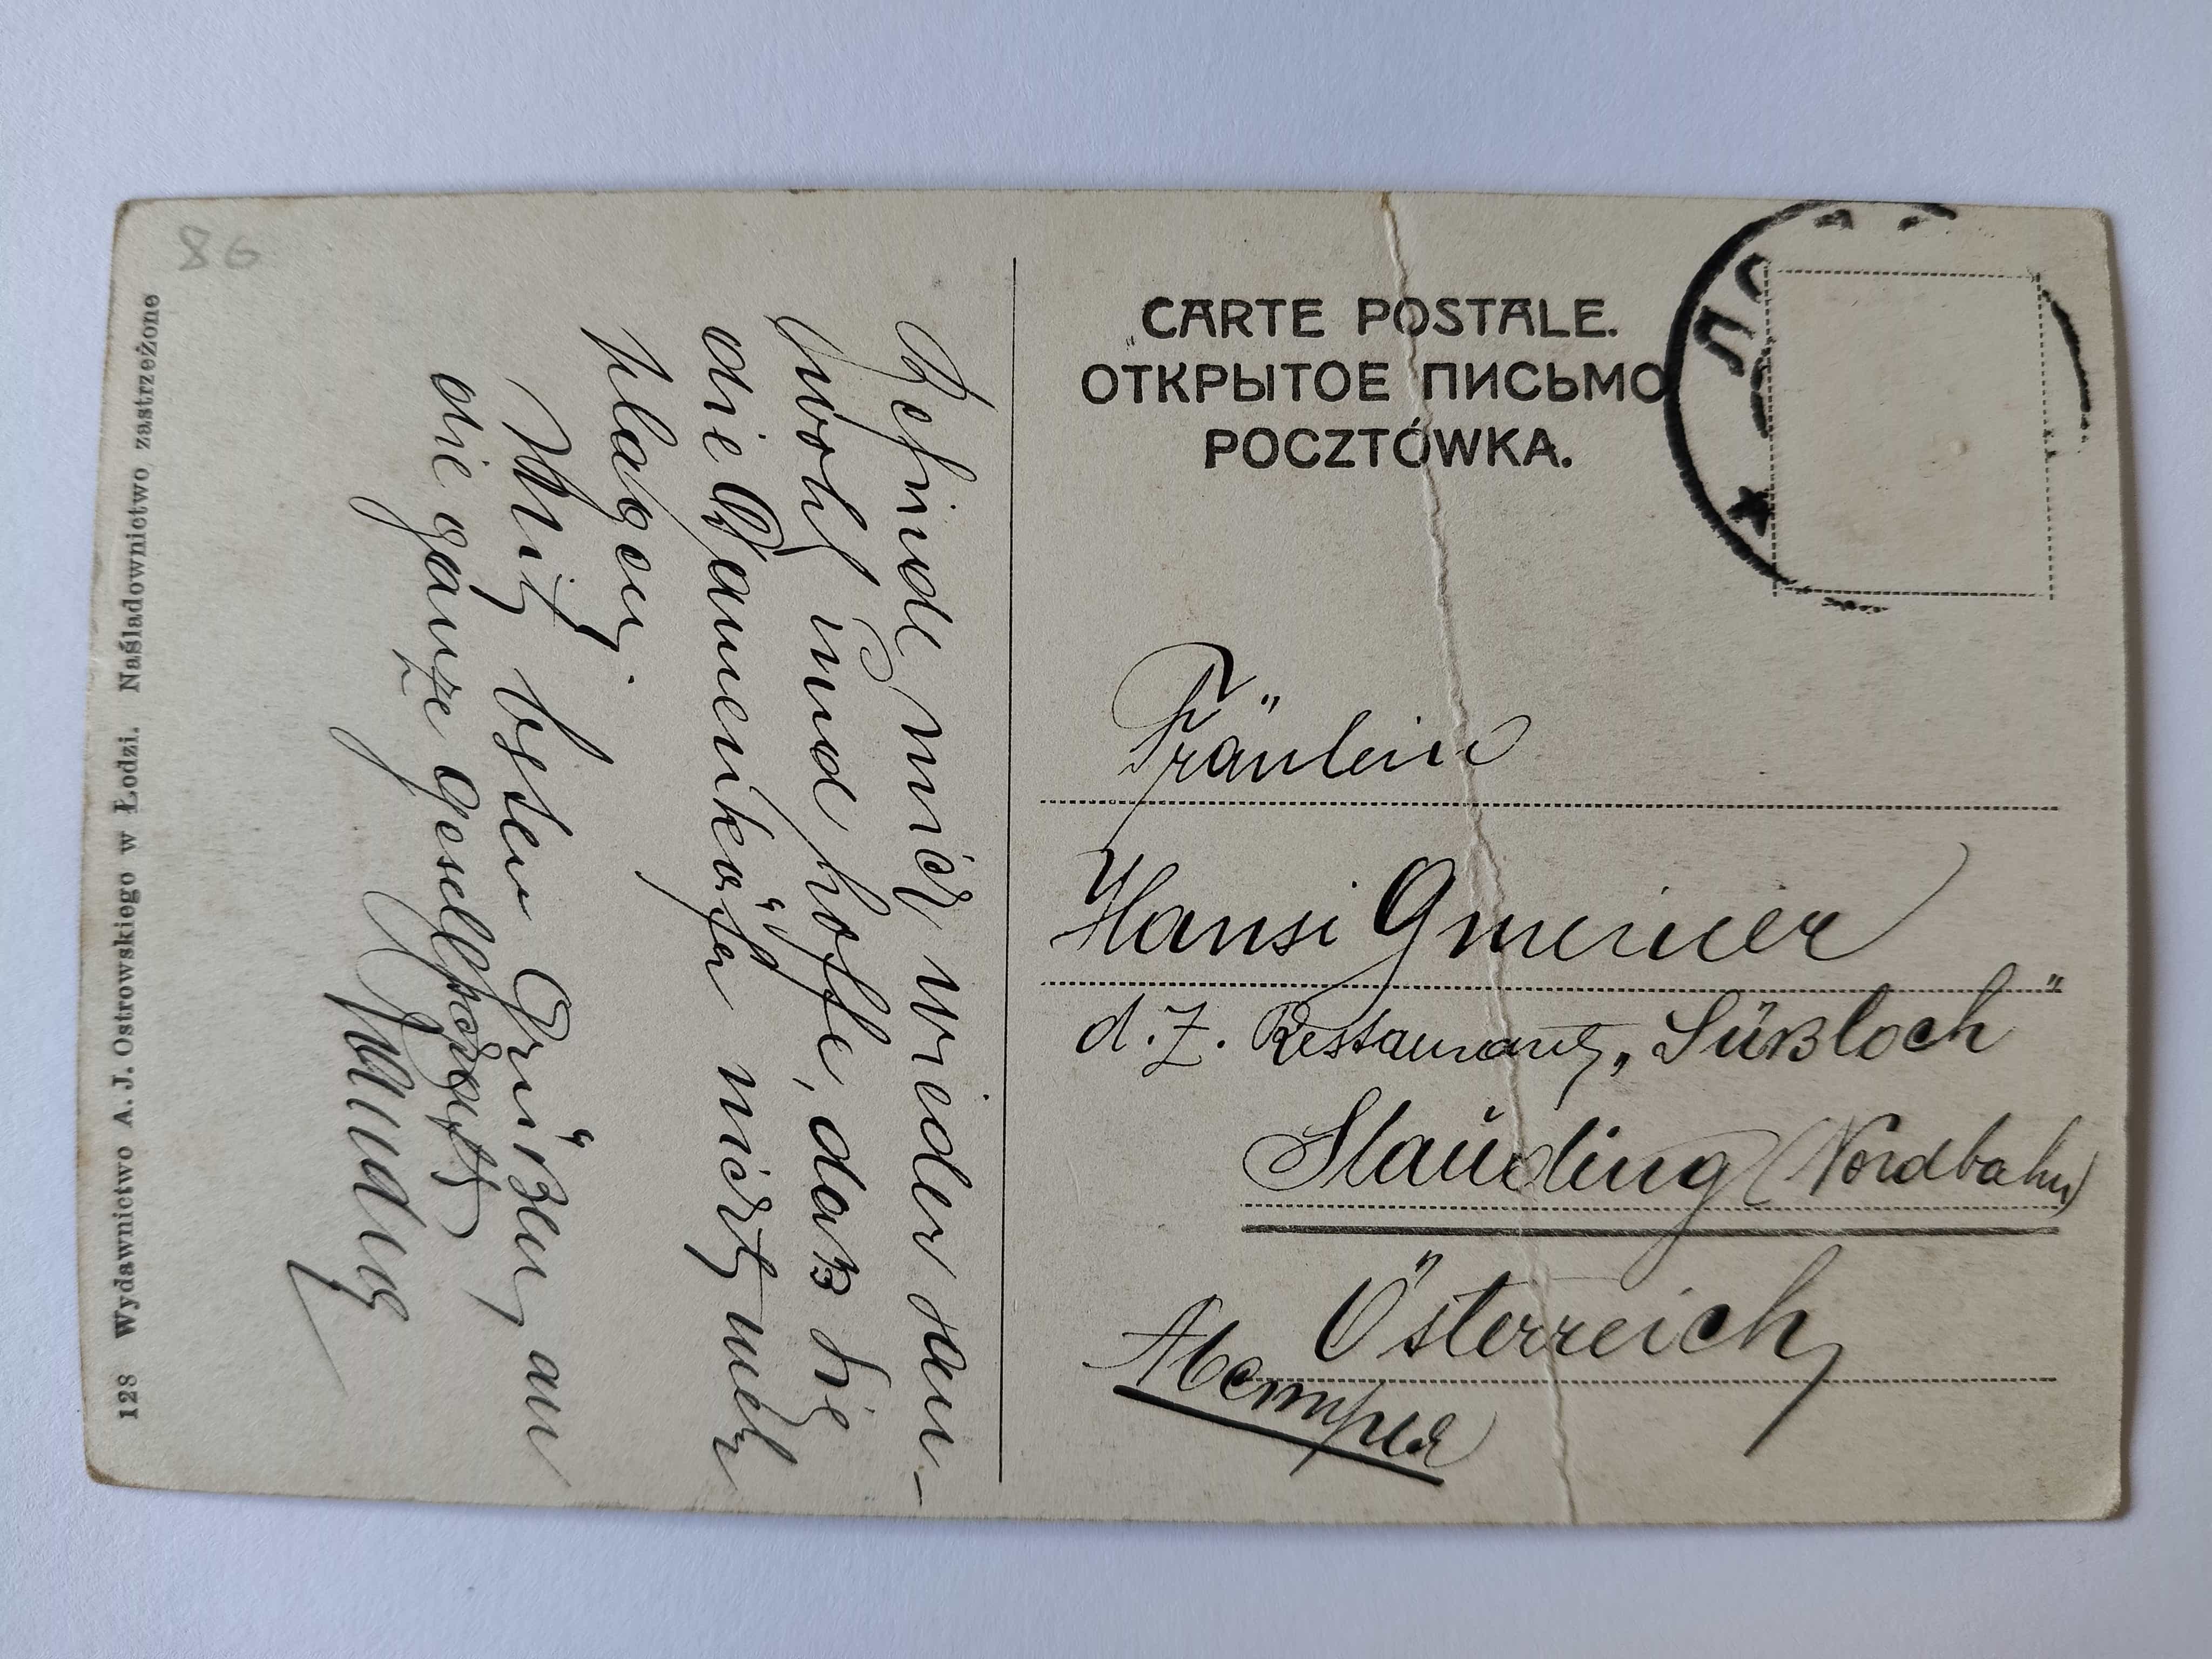 86
Befinde mich wieder sau-
wohl und hoffe, dass Sie
die Wamenkäfer nicht mehr
plagen.
Mit besten Grüßen an
die ganze Gesellschaft
128 Wydawnictwo A. J. Ostrowskiego w Łodzi. Naśladownictwo zastrzeżone
CARTE POSTALE.
ОТКРЫТОЕ ПИСЬМО
POCZTÓWKA.
Fräulein
Hansi Gmeiner
d. Z. Restaurant „Süßloch"
Stauding (Nordbahn)
Österreich
Австрия